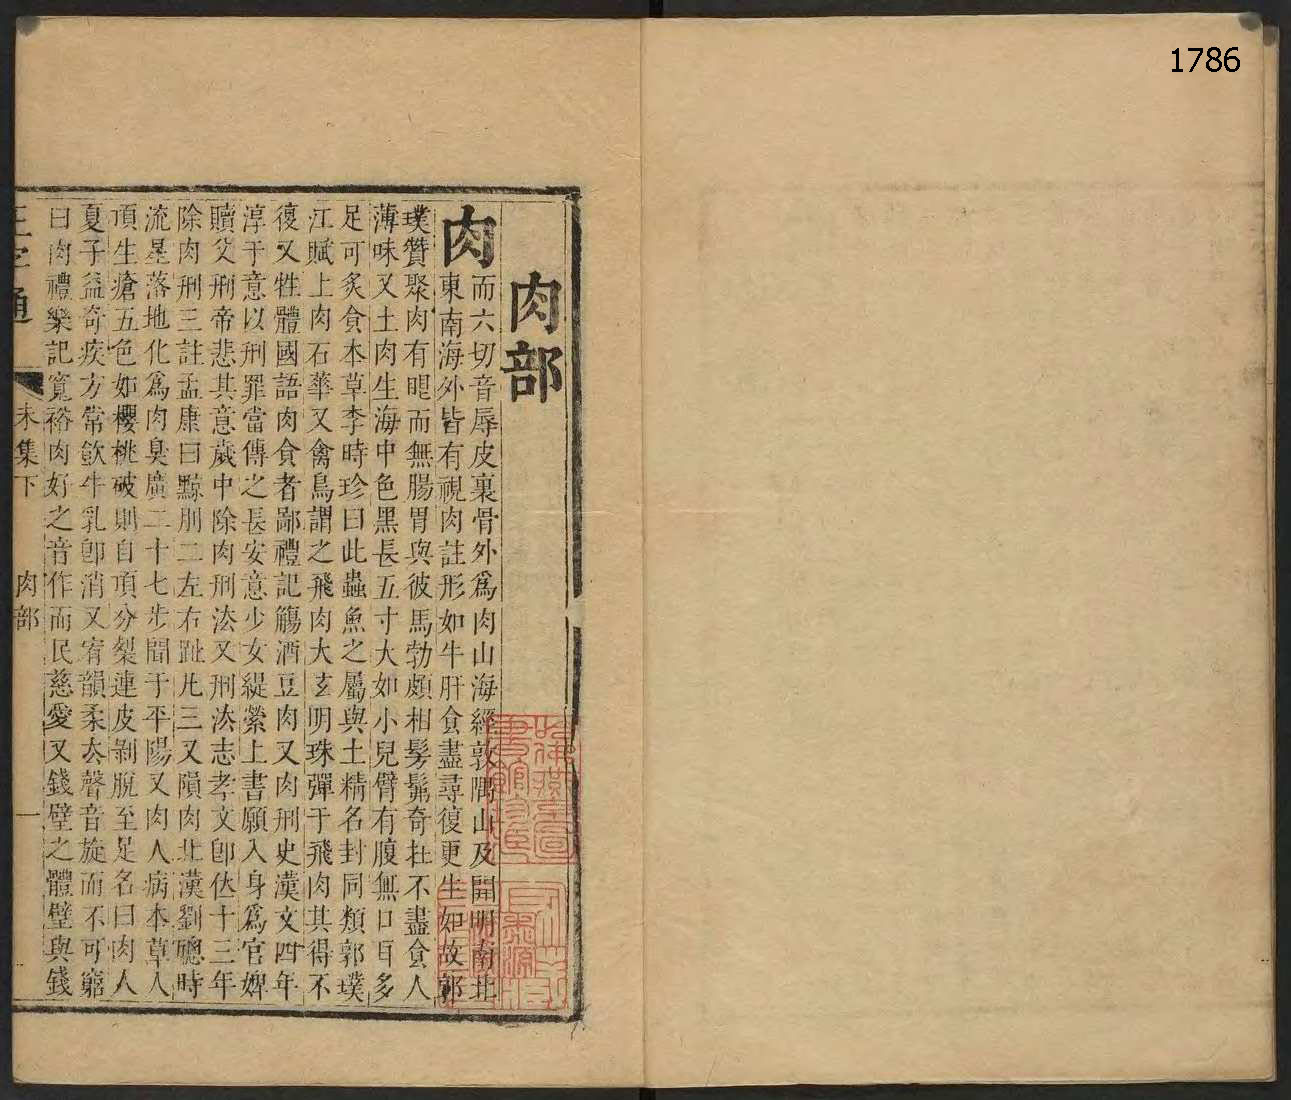 1786
肉部
肉
而六切音辱皮裏骨外爲肉山海經敦隅山及開明南北
東南海外皆有視肉註形如牛肝食盡尋復更生如故郭
璞贊聚肉有眼而無腸胃與彼馬勃頗相髣髴奇在不盡食人
薄味又土肉生海中色黑長五寸大如小兒臂有腹無口目多
足可炙食本草李時珍曰此蟲魚之屬與土精名封同類郭璞
江賦上肉石華又禽鳥謂之飛肉大玄明珠彈于飛肉其得不
復又牲體國語肉食者鄙禮記觴酒豆肉又肉刑史漢文四年
淳于意以刑罪當傳之長安意少女緹縈上書願入身爲官婢
贖父刑帝悲其意歲中除肉刑法又刑法志孝文卽位十三年
除肉刑三註孟康曰黥刖二左右趾凡三又隕肉北漢劉聰時
流星落地化爲肉臭廣二十七步間于平陽又肉人病本草人
頂生瘡五色如櫻桃破則自頂分裂連皮剝脫至足名曰肉人
夏子益奇疾方常飲牛乳卽消又宥韻柔去聲音旋而不可窮
曰肉禮樂記寬裕肉好之音作而民慈愛又錢璧之體璧與錢
正字通
未集下
肉部
一